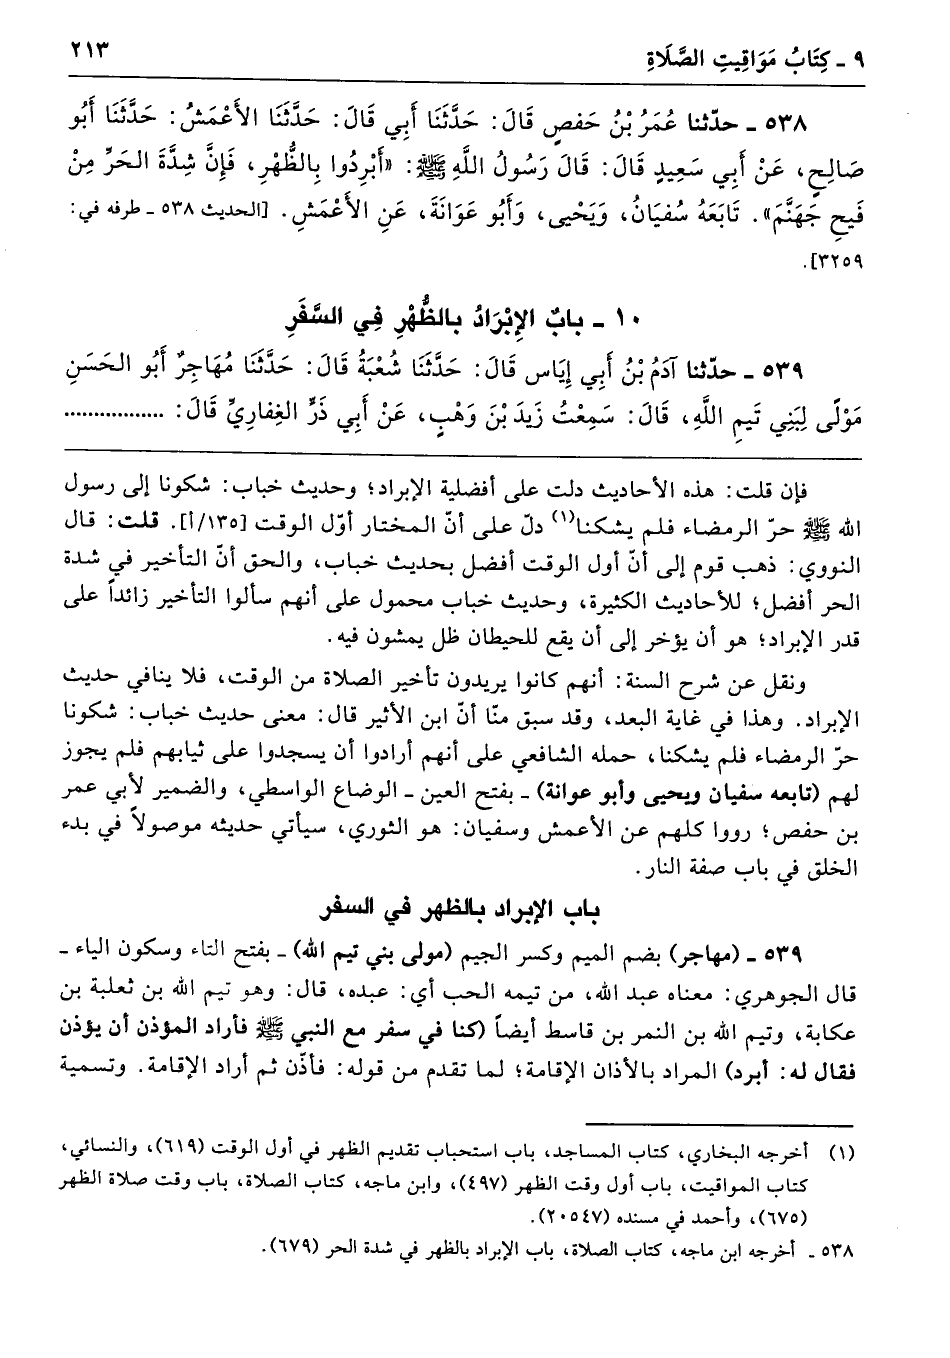 ٩ ـ كِتَابُ مَوَاقِيتِ الصَّلَاةِ
٢١٣
٥٣٨ ـ حدّثنا عُمَرُ بْنُ حَفصٍ قَالَ: حَدَّثَنَا أَبِي قَالَ: حَدَّثَنَا الأَعْمَشُ: حَدَّثَنَا أَبُو
صَالِحٍ، عَنْ أَبِي سَعِيدٍ قَالَ: قَالَ رَسُولُ اللَّهِ ﷺ: «أَبْرِدُوا بِالظُّهْرِ، فَإِنَّ شِدَّةَ الحَرِّ مِنْ
فَيحِ جَهَنَّمَ». تَابَعَهُ سُفيَانُ، وَيَحْيى، وَأَبُو عَوَانَةَ، عَنِ الأَعْمَشِ. [الحديث ٥٣٨ ـ طرفه في:
٣٢٥٩].
١٠ ـ بابُ الإِبْرَادُ بالظُّهْرِ فِي السَّفَرِ
٥٣٩ ـ حدّثنا آدَمُ بْنُ أَبِي إِيَاس قَالَ: حَدَّثَنَا شُعْبَةُ قَالَ: حَدَّثَنَا مُهَاجِرٌ أَبُو الحَسَنِ
مَوْلًى لِبَنِي تَيمِ اللَّهِ، قَالَ: سَمِعْتُ زَيدَ بْنَ وَهْبٍ، عَنْ أَبِي ذَرٍّ الغِفارِيِّ قَالَ: .................
فإن قلت: هذه الأحاديث دلت على أفضلية الإبراد؛ وحديث خباب: شكونا إلى رسول
الله ﷺ حرّ الرمضاء فلم يشكنا(١) دلّ على أنّ المختار أوّل الوقت [١٣٥/أ]. قلت: قال
النووي: ذهب قوم إلى أنّ أول الوقت أفضل بحديث خباب، والحق أنّ التأخير في شدة
الحر أفضل؛ للأحاديث الكثيرة، وحديث خباب محمول على أنهم سألوا التأخير زائداً على
قدر الإبراد؛ هو أن يؤخر إلى أن يقع للحيطان ظل يمشون فيه.
ونقل عن شرح السنة: أنهم كانوا يريدون تأخير الصلاة من الوقت، فلا ينافي حديث
الإبراد. وهذا في غاية البعد، وقد سبق منّا أنّ ابن الأثير قال: معنى حديث خباب: شكونا
حرّ الرمضاء فلم يشكنا، حمله الشافعي على أنهم أرادوا أن يسجدوا على ثيابهم فلم يجوز
لهم (تابعه سفيان ويحيى وأبو عوانة) ـ بفتح العين ـ الوضاع الواسطي، والضمير لأبي عمر
بن حفص؛ رووا كلهم عن الأعمش وسفيان: هو الثوري، سيأتي حديثه موصولاً في بدء
الخلق في باب صفة النار.
باب الإبراد بالظهر في السفر
٥٣٩ ـ (مهاجر) بضم الميم وكسر الجيم (مولى بني تيم الله) ـ بفتح التاء وسكون الياء ـ
قال الجوهري: معناه عبد الله، من تيمه الحب أي: عبده، قال: وهو تيم الله بن ثعلبة بن
عكابة، وتيم الله بن النمر بن قاسط أيضاً (كنا في سفر مع النبي ﷺ فأراد المؤذن أن يؤذن
فقال له: أبرد) المراد بالأذان الإقامة؛ لما تقدم من قوله: فأذّن ثم أراد الإقامة. وتسمية
(١) أخرجه البخاري، كتاب المساجد، باب استحباب تقديم الظهر في أول الوقت (٦١٩)، والنسائي،
كتاب المواقيت، باب أول وقت الظهر (٤٩٧)، وابن ماجه، كتاب الصلاة، باب وقت صلاة الظهر
(٦٧٥)، وأحمد في مسنده (٢٠٥٤٧).
٥٣٨ ـ أخرجه ابن ماجه، كتاب الصلاة، باب الإبراد بالظهر في شدة الحر (٦٧٩).